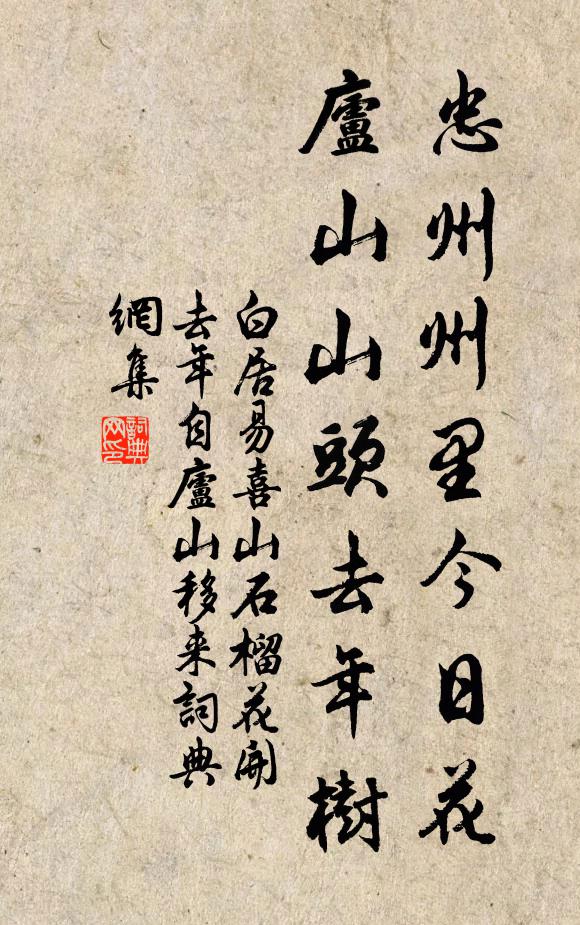 忠州州里今日花
廬山山頭去年樹
白居易喜山石榴花開
去年自廬山移来詞典
網集
詞典
网印